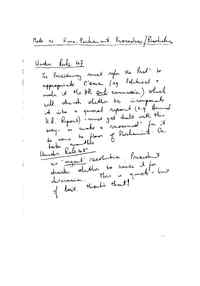 Note on European Parliament Procedures/Resolutions
Under Rule 47
The Presidency must refer the Resn to
appropriate C'ttee (eg Political +
make it the HR Sub commission) which
will decide whether to incorporate
it into a general report (eg Annual
H.R. Report) - must get dealt with this
way. or make a "recommend" for it
to come to floor of Parliament. Can
take months
Under Rule 48
an "urgent" resolution President
decides whether to raise it for
discussion. This is quick - but
if lost, that's that!